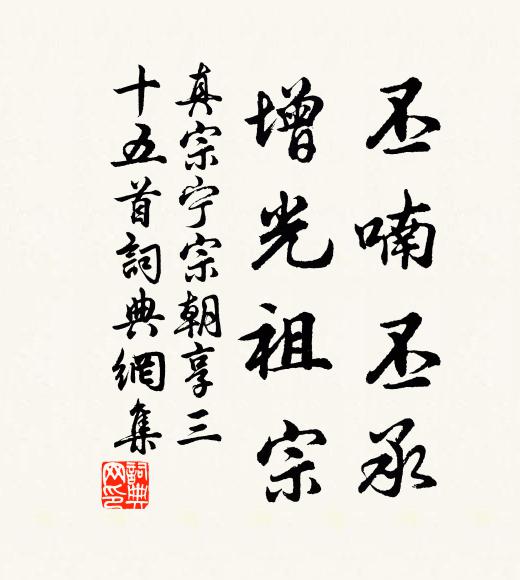 丕喃丕承
增光祖宗
真宗宁宗朝享三
十五首詞典網集
詞典网印